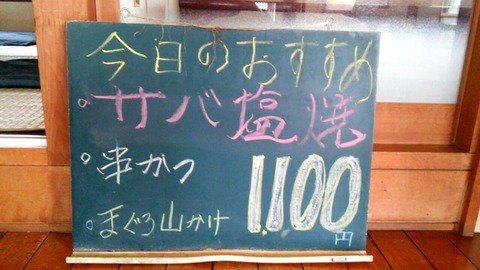 今日のおすすめ
。サバ塩焼
。串かつ
。まぐろ山かけ
1,100円